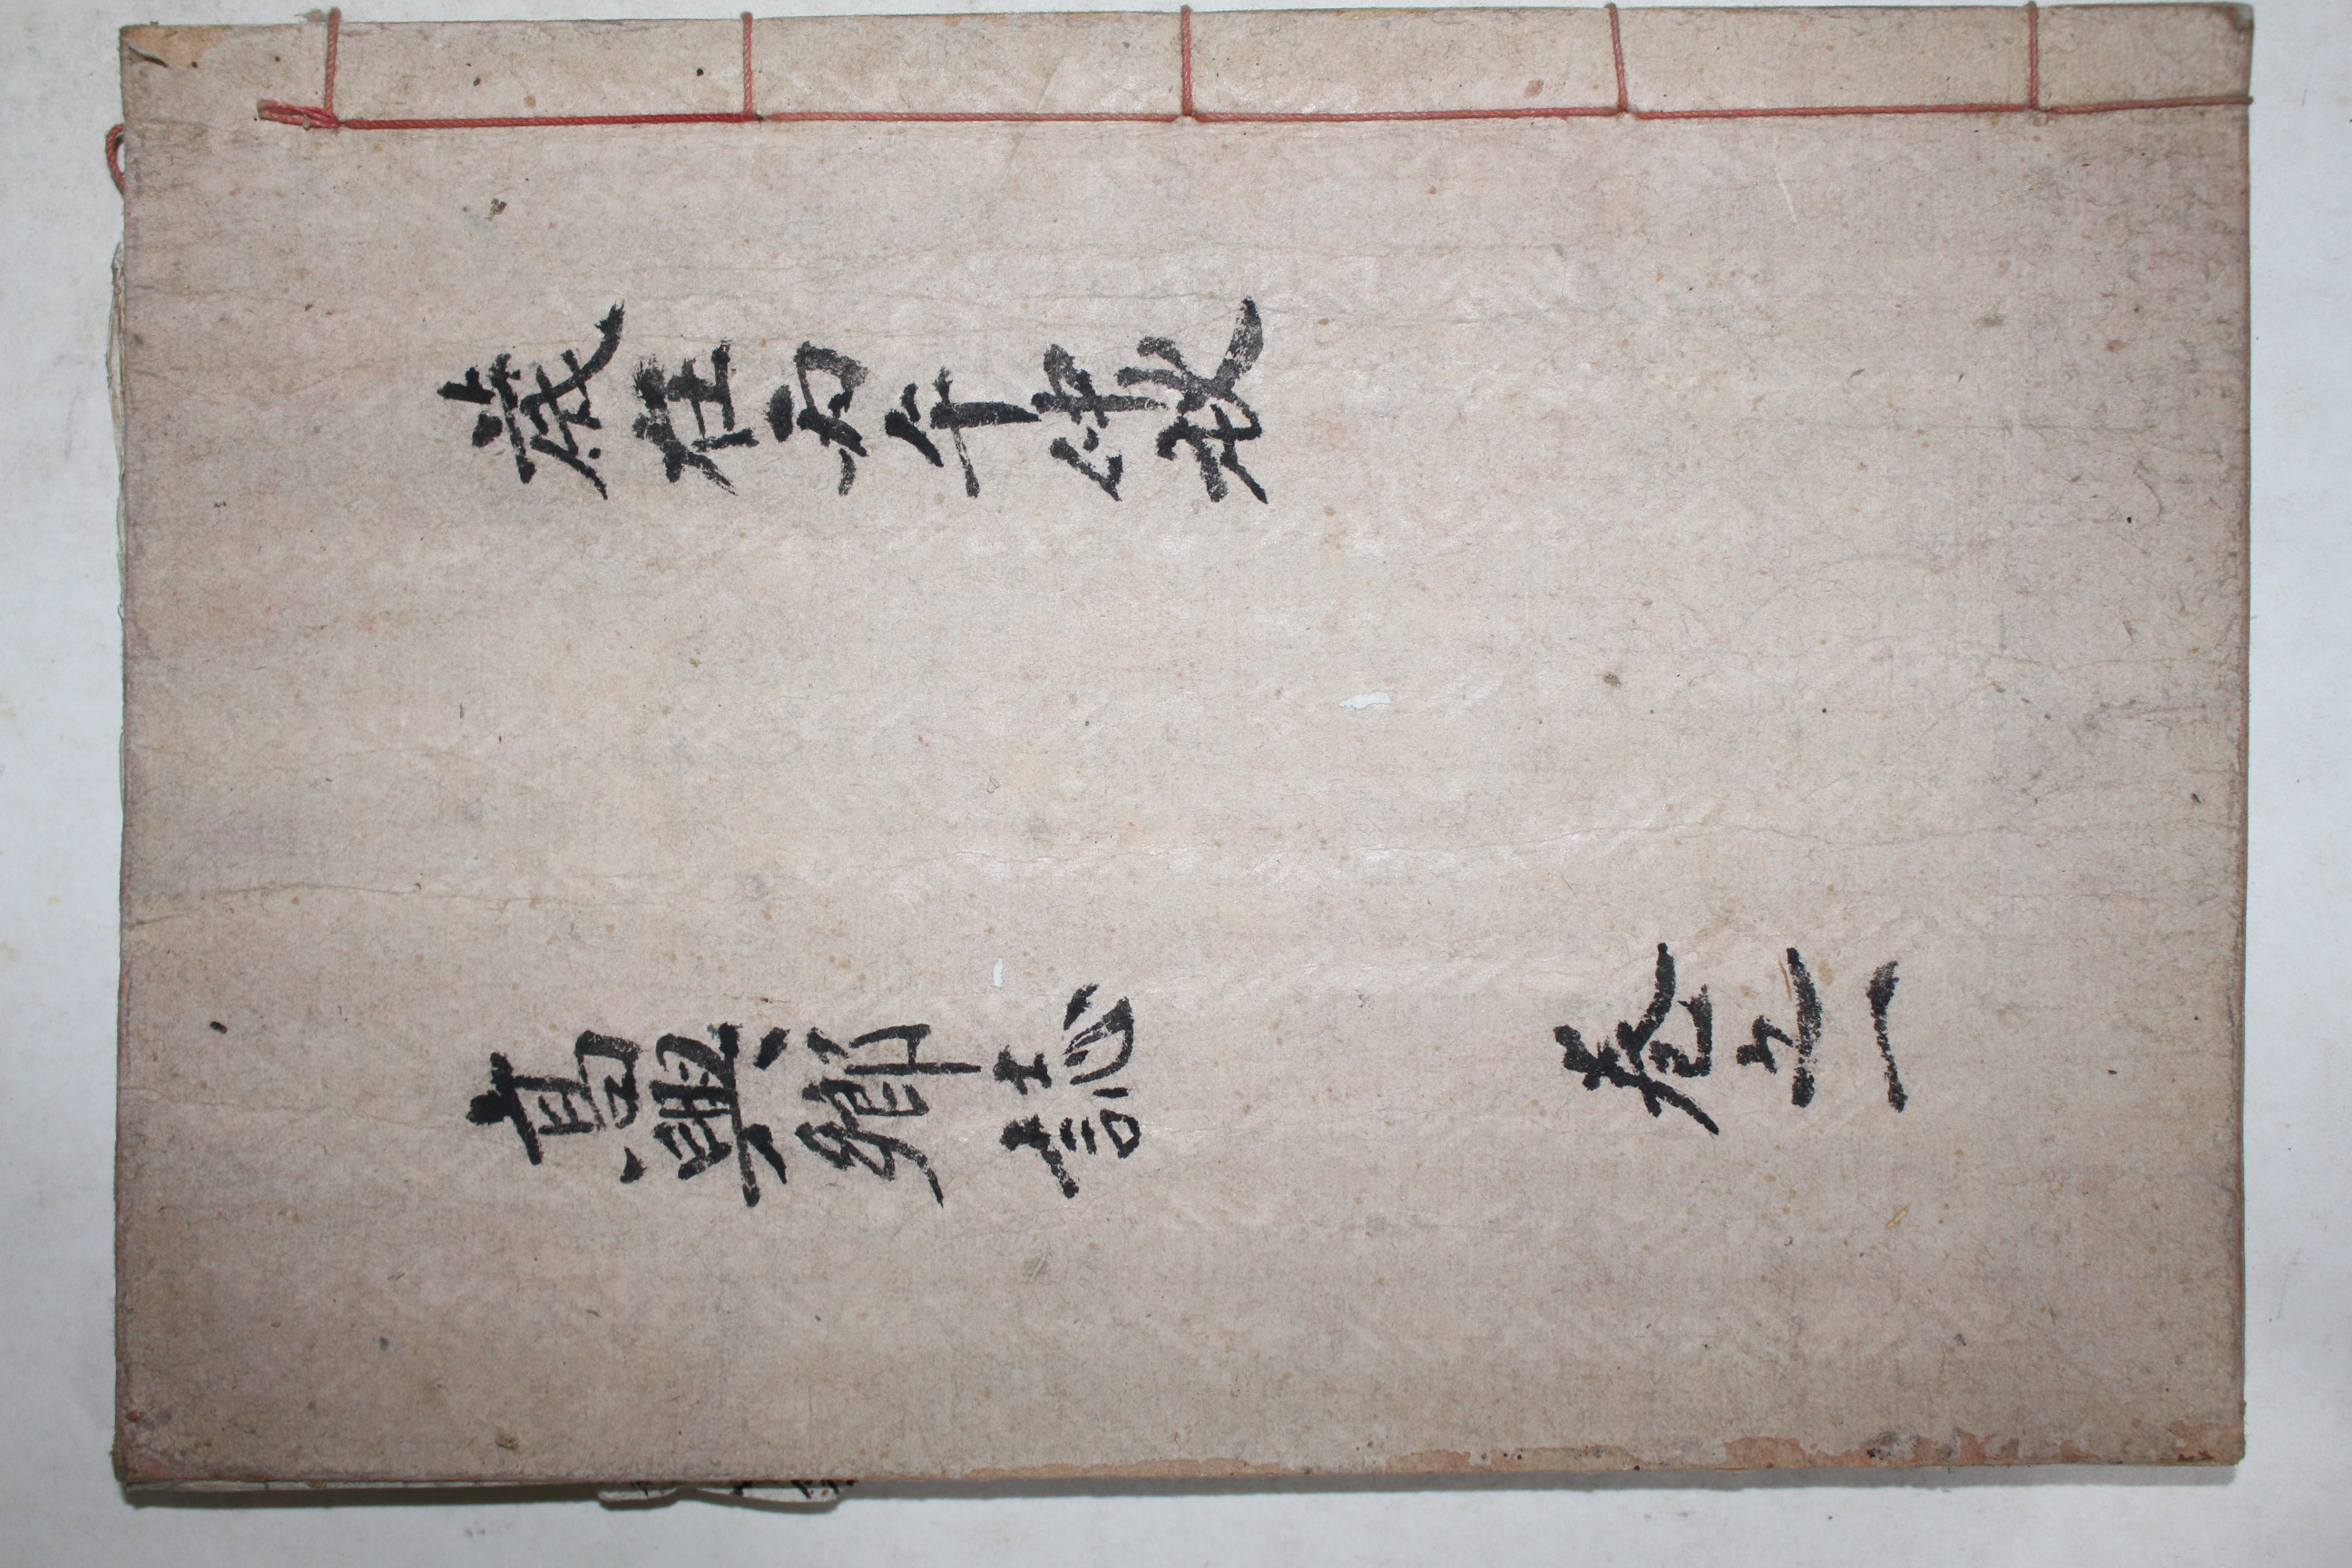 歲在丙午仲秋
高興鄕誌 卷之一